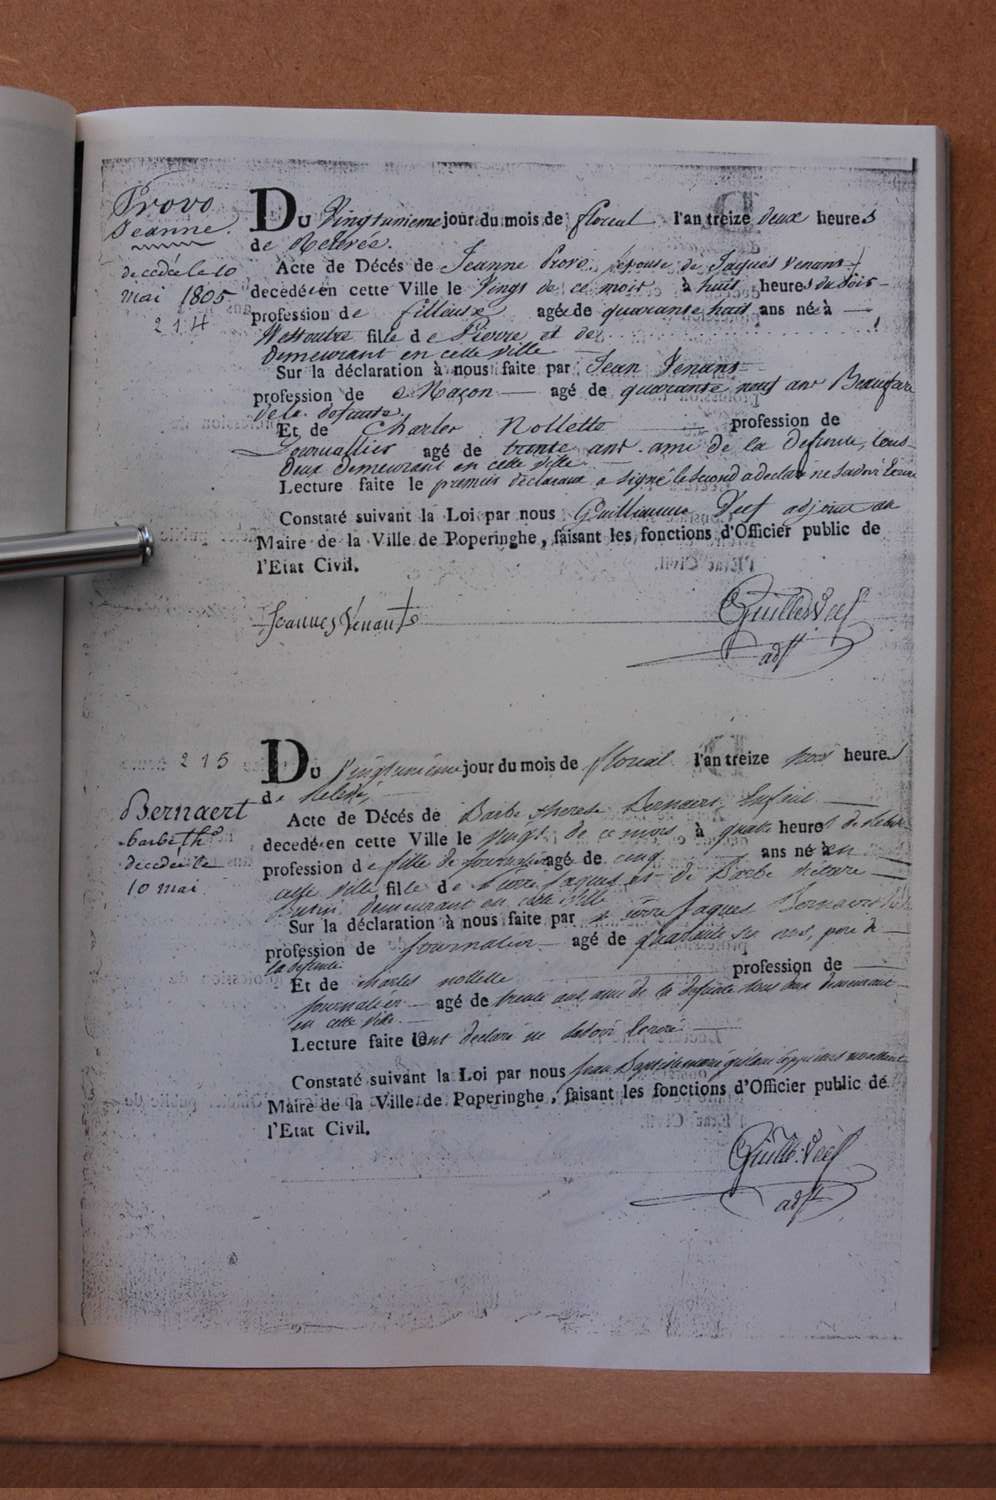 Provo
Jeanne.
decedée le 10
mai 1805
214
Du Vingtunieme jour du mois de floreal l'an treize deux heures
de Relevée.
Acte de Décés de Jeanne Provo, épouse de Jaques Venant
decedée en cette Ville le Vingt de ce mois à huit heures du soir
profession de filleuse agée de quarante huit ans né à
Westoutre fille de Pierre et de
demeurant en cette ville
Sur la déclaration à nous faite par Jean Venant
profession de Maçon agé de quarante neuf ans Beaufrere
de la defunte.
Et de Charles Nollette profession de
Journallier agé de trente ans ami de la defunte, tous
deux demeurant en cette ville
Lecture faite le premier déclarant a signé le second a declaré ne savoir Ecrire
Constaté suivant la Loi par nous Guilliaume Veef adjoint au
Maire de la Ville de Poperinghe, faisant les fonctions d'Officier public de
l'Etat Civil.
Joannes Venant
Guille Veef
adjt
215
Bernaert
barbe Th.
decedée le
10 mai
Du Vingtunieme jour du mois de floreal l'an treize trois heures
de Relevée
Acte de Décés de Barbe therese Bernaert
decedée en cette Ville le Vingt de ce mois à quatre heures de
profession de fille de journalier agé de cinq ans né en
cette ville fille de Pierre Jaques et de Barbe
demeurant en cette ville
Sur la déclaration à nous faite par Pierre Jaques Bernaert
profession de journalier agé de quarante ans, pere de
la defunte
Et de charles nollette profession de
journalier agé de trente ans ami de la defunte tous deux demeurant
en cette ville.
Lecture faite Ont declaré ne savoir Ecrire
Constaté suivant la Loi par nous
Maire de la Ville de Poperinghe, faisant les fonctions d'Officier public de
l'Etat Civil.
Guille. Veef
adjt